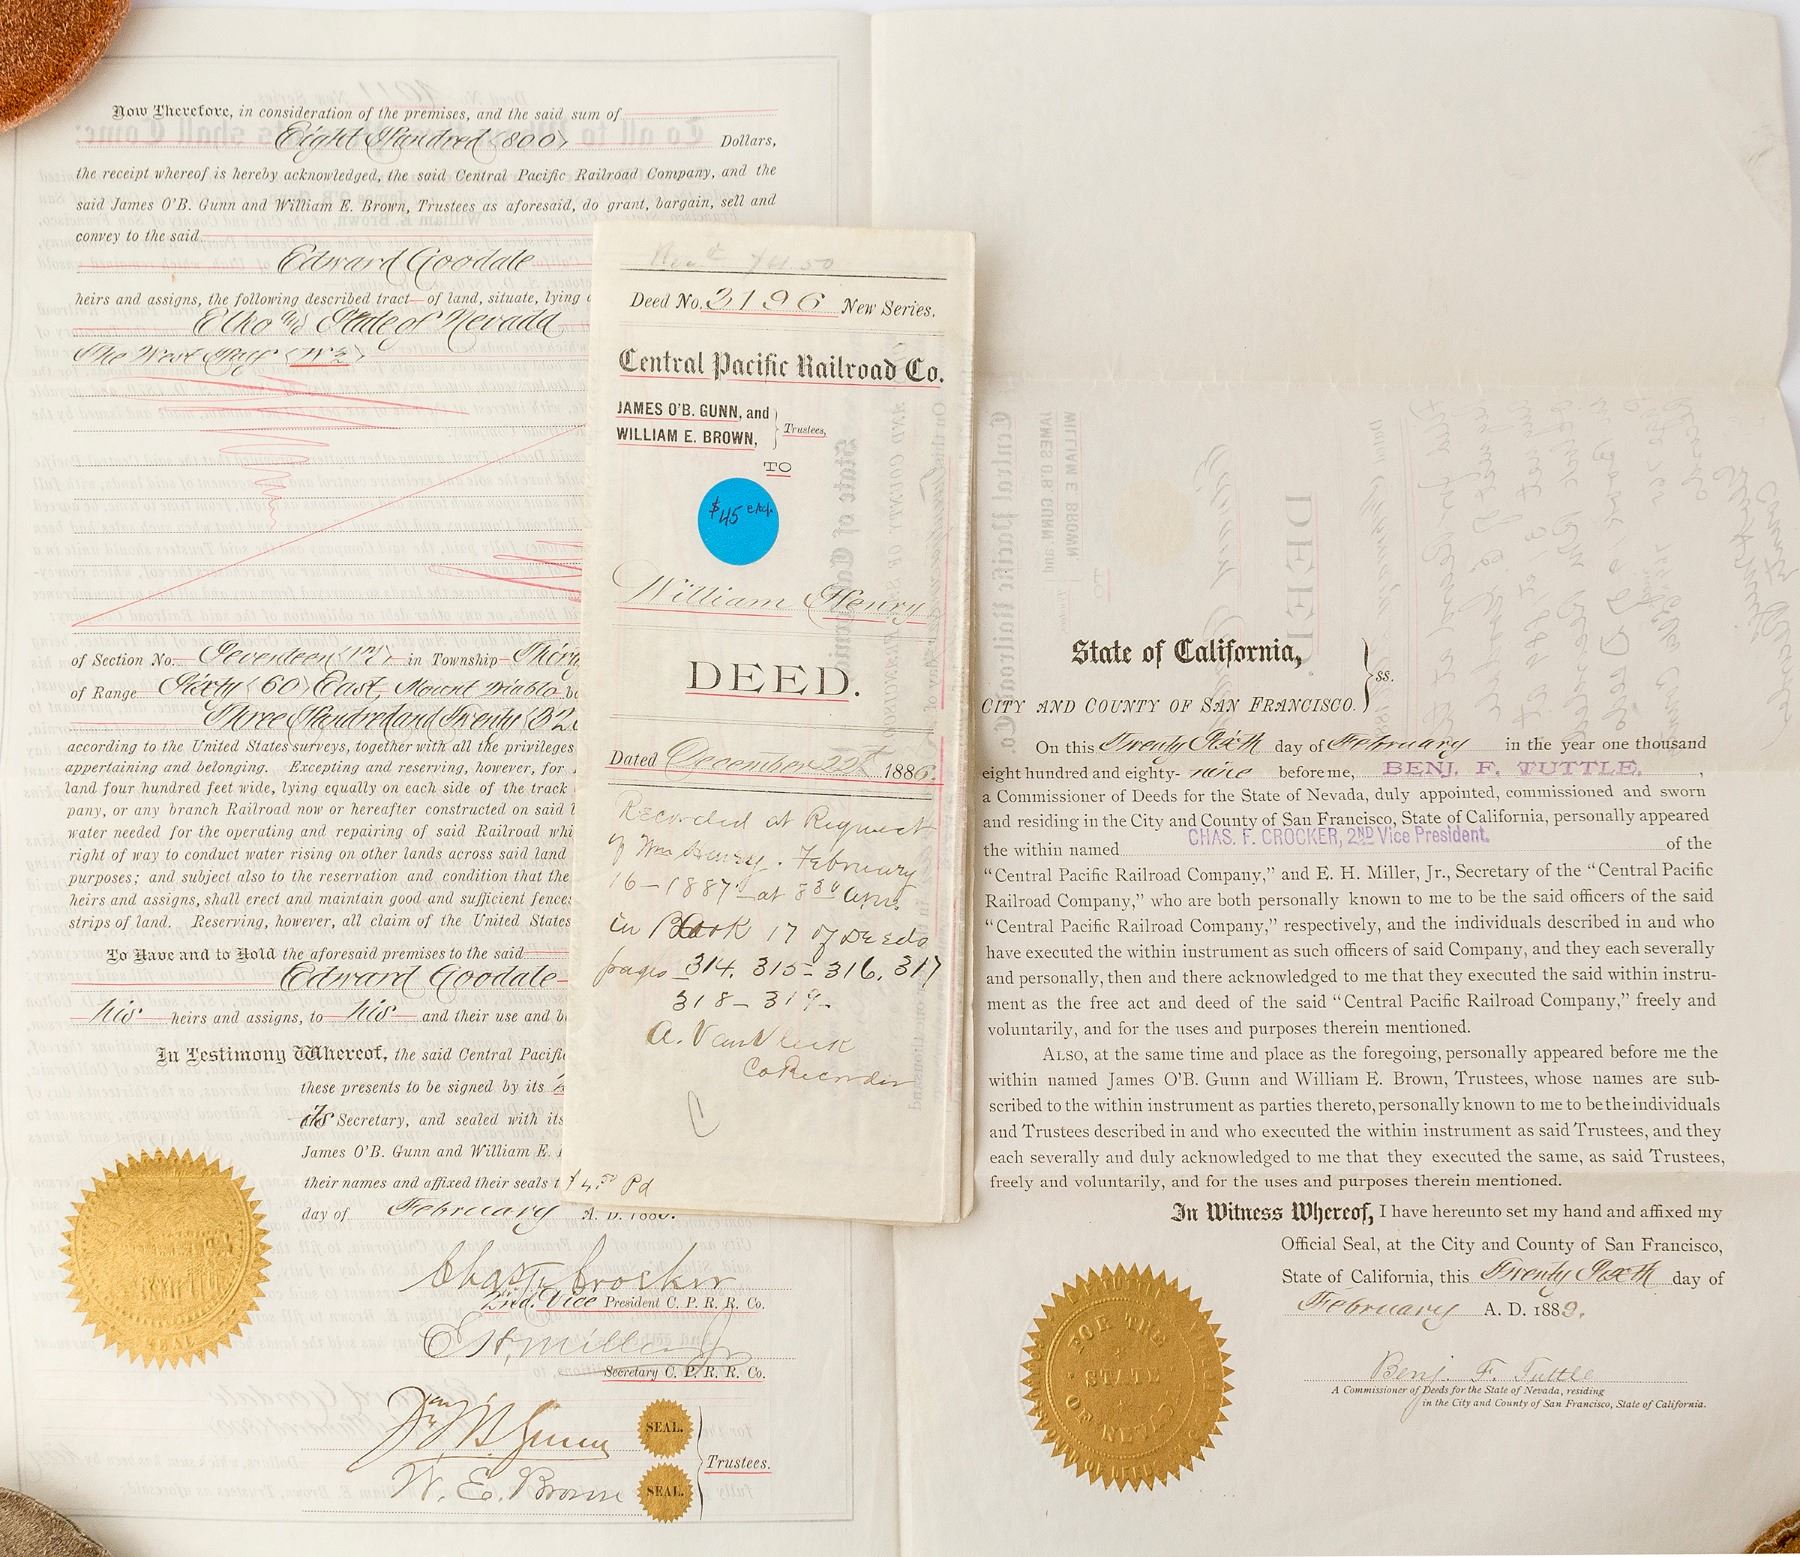 Now Therefore, in consideration of the premises, and the said sum of
Eight Hundred (800) Dollars,
the receipt whereof is hereby acknowledged, the said Central Pacific Railroad Company, and the
said James O'B. Gunn and William E. Brown, Trustees as aforesaid, do grant, bargain, sell and
convey to the said
Edward Goodale
heirs and assigns, the following described tract of land, situate, lying
Elko and State of Nevada
The West Half (W½)
of Section No. Seventeen (17) in Township
of Range Sixty (60) East, Mount Diablo
Three Hundred and Twenty (320
according to the United States surveys, together with all the privileges
appertaining and belonging. Excepting and reserving, however, for
land four hundred feet wide, lying equally on each side of the track
pany, or any branch Railroad now or hereafter constructed on said
water needed for the operating and repairing of said Railroad
right of way to conduct water rising on other lands across said land
purposes; and subject also to the reservation and condition that the
heirs and assigns, shall erect and maintain good and sufficient fences
strips of land. Reserving, however, all claim of the United States
To Have and to Hold the aforesaid premises to the said
Edward Goodale
his heirs and assigns, to his and their use and
In Testimony Whereof, the said Central Pacific
these presents to be signed by its
its Secretary, and sealed with its
James O'B. Gunn and William E.
their names and affixed their seals
day of February A. D. 188
Chas. F. Crocker
2nd. Vice President C. P. R. R. Co.
E H. Miller Jr
Secretary C. P. R. R. Co.
Jas O'B Gunn
SEAL.
W. E. Brown
SEAL.
Trustees.
SEAL
Deed No. 3196 New Series.
Central Pacific Railroad Co.
JAMES O'B. GUNN, and
WILLIAM E. BROWN,
Trustees,
TO
$45 each
William Henry
DEED.
Dated December 22d 1886.
Recorded at Request
of Wm Henry. February
16-1887 at 8 30 a.m.
in Book 17 of Deeds
pages 314. 315- 316. 317
318- 319-
A. Van Vleck
Co Recorder
$4.50 Pd
State of California,
CITY AND COUNTY OF SAN FRANCISCO.
ss.
On this Twenty Sixth day of February in the year one thousand
eight hundred and eighty- nine before me, BENJ. F. TUTTLE,
a Commissioner of Deeds for the State of Nevada, duly appointed, commissioned and sworn
and residing in the City and County of San Francisco, State of California, personally appeared
the within named CHAS. F. CROCKER, 2ND Vice President. of the
"Central Pacific Railroad Company," and E. H. Miller, Jr., Secretary of the "Central Pacific
Railroad Company," who are both personally known to me to be the said officers of the said
"Central Pacific Railroad Company," respectively, and the individuals described in and who
have executed the within instrument as such officers of said Company, and they each severally
and personally, then and there acknowledged to me that they executed the said within instru-
ment as the free act and deed of the said "Central Pacific Railroad Company," freely and
voluntarily, and for the uses and purposes therein mentioned.
ALSO, at the same time and place as the foregoing, personally appeared before me the
within named James O'B. Gunn and William E. Brown, Trustees, whose names are sub-
scribed to the within instrument as parties thereto, personally known to me to be the individuals
and Trustees described in and who executed the within instrument as said Trustees, and they
each severally and duly acknowledged to me that they executed the same, as said Trustees,
freely and voluntarily, and for the uses and purposes therein mentioned.
In Witness Whereof, I have hereunto set my hand and affixed my
Official Seal, at the City and County of San Francisco,
State of California, this Twenty Sixth day of
February A. D. 1889.
Benj. F. Tuttle
A Commissioner of Deeds for the State of Nevada, residing
in the City and County of San Francisco, State of California.
FOR THE
STATE
OF